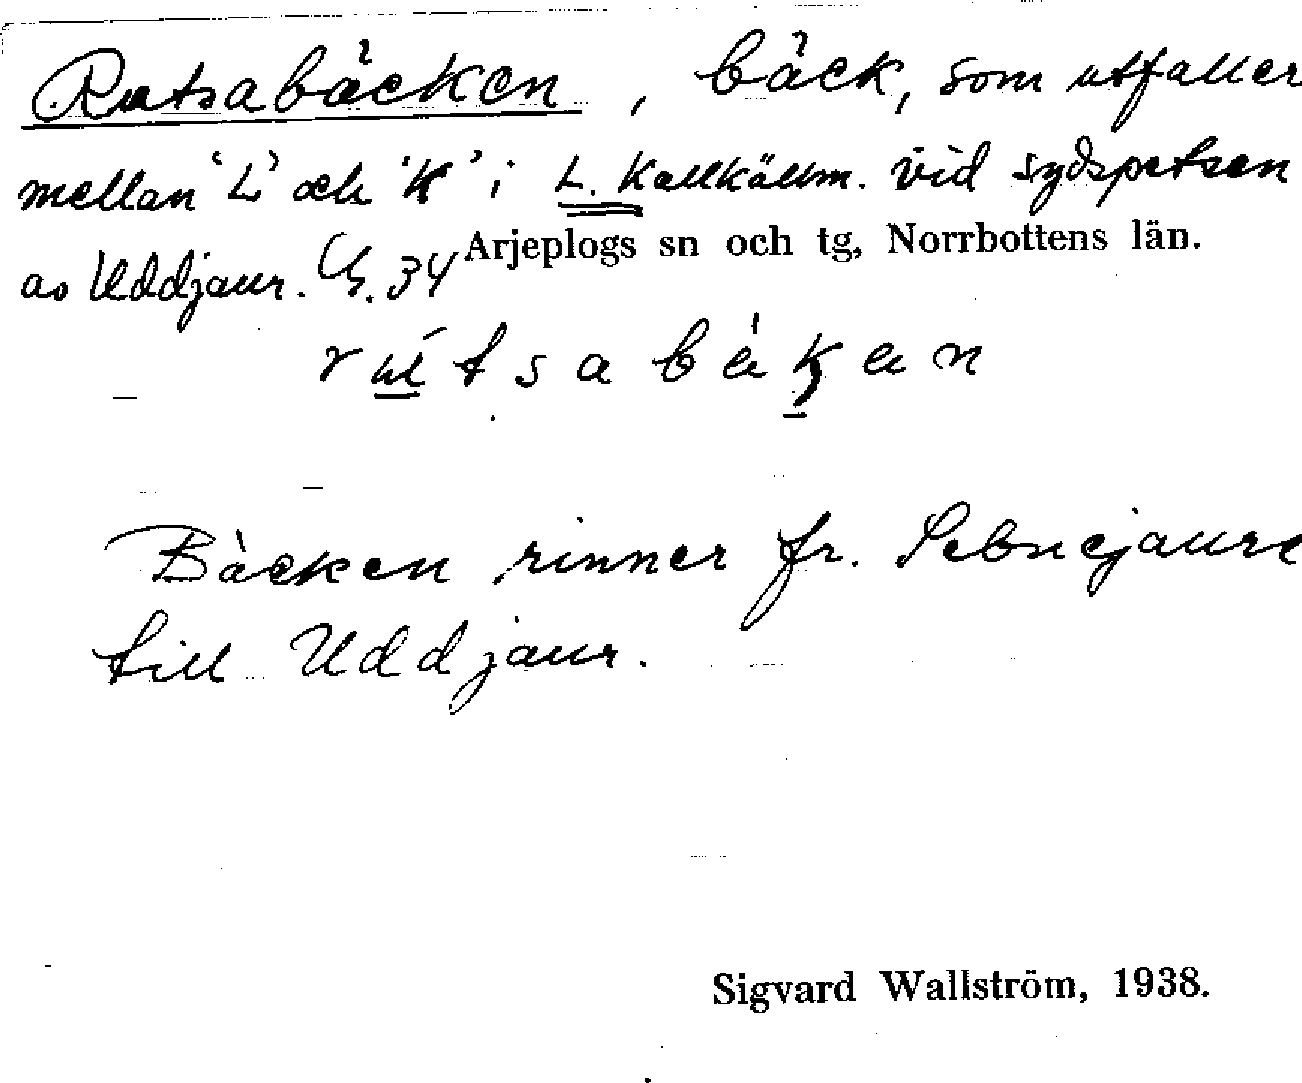 Rutsabäcken, bäck, som utfaller
mellan 'L' och 'K' i L. Kallkällm. vid sydspetsen
av Uddjaur. G. 34 Arjeplogs sn och tg, Norrbottens län.
Bäcken rinner fr. Sebnejaure
till Uddjaur.
Sigvard Wallström, 1938.